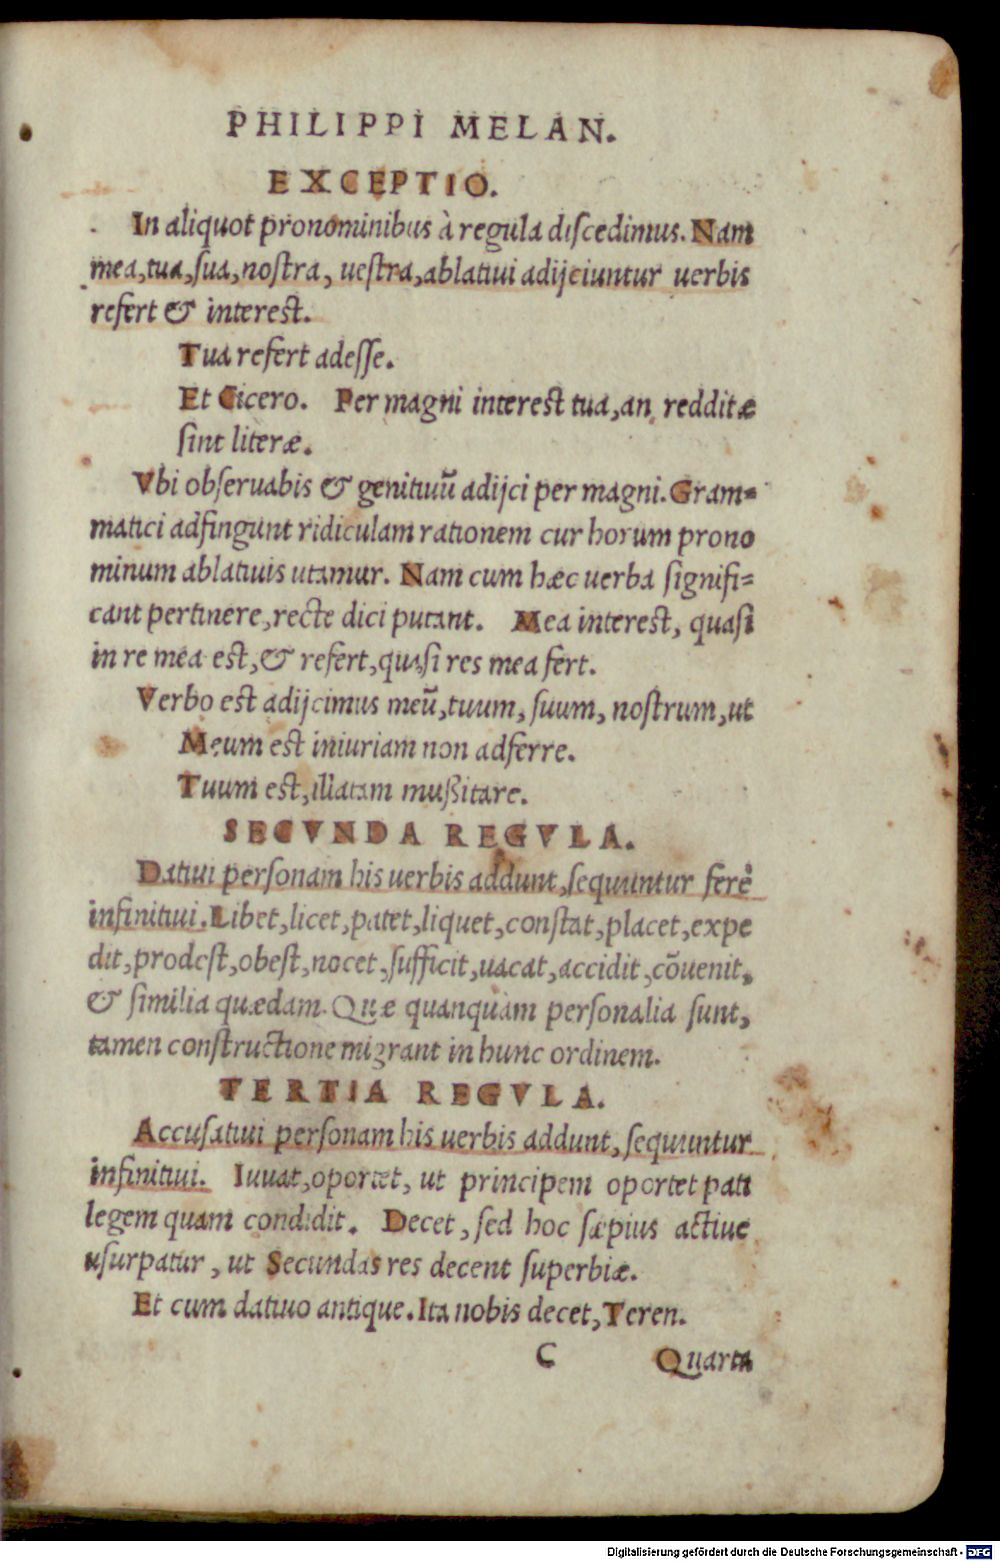 PHILIPPI MELAN.
EXCEPTIO.
In aliquot pronominibus à regula discedimus. Nam
mea, tua, sua, nostra, uestra, ablatiui adijciuntur uerbis
refert & interest.
Tua refert adesse.
Et Cicero. Per magni interest tua, an redditæ
sint literæ.
Vbi obseruabis & genitiuũ adijci per magni. Gram=
matici adfingunt ridiculam rationem cur horum prono
minum ablatiuis utamur. Nam cum hæc uerba signifi=
cant pertinere, recte dici putant. Mea interest, quasi
in re mea est, & refert, quasi res mea fert.
Verbo est adijcimus meũ, tuum, suum, nostrum, ut
Meum est iniuriam non adferre.
Tuum est, illatam mußitare.
SECVNDA REGVLA.
Datiui personam his uerbis addunt, sequuntur ferè
infinitiui. Libet, licet, patet, liquet, constat, placet, expe
dit, prodest, obest, nocet, sufficit, uacat, accidit, cõuenit,
& similia quædam. Quæ quanquàm personalia sunt,
tamen constructione migrant in hunc ordinem.
TERTIA REGVLA.
Accusatiui personam his uerbis addunt, sequuntur
infinitiui. Iuuat, oportet, ut principem oportet pati
legem quam condidit. Decet, sed hoc sæpius actiue
usurpatur, ut Secundas res decent superbiæ.
Et cum datiuo antique. Ita nobis decet, Teren.
C Quarta
Digitalisierung gefördert durch die Deutsche Forschungsgemeinschaft - DFG